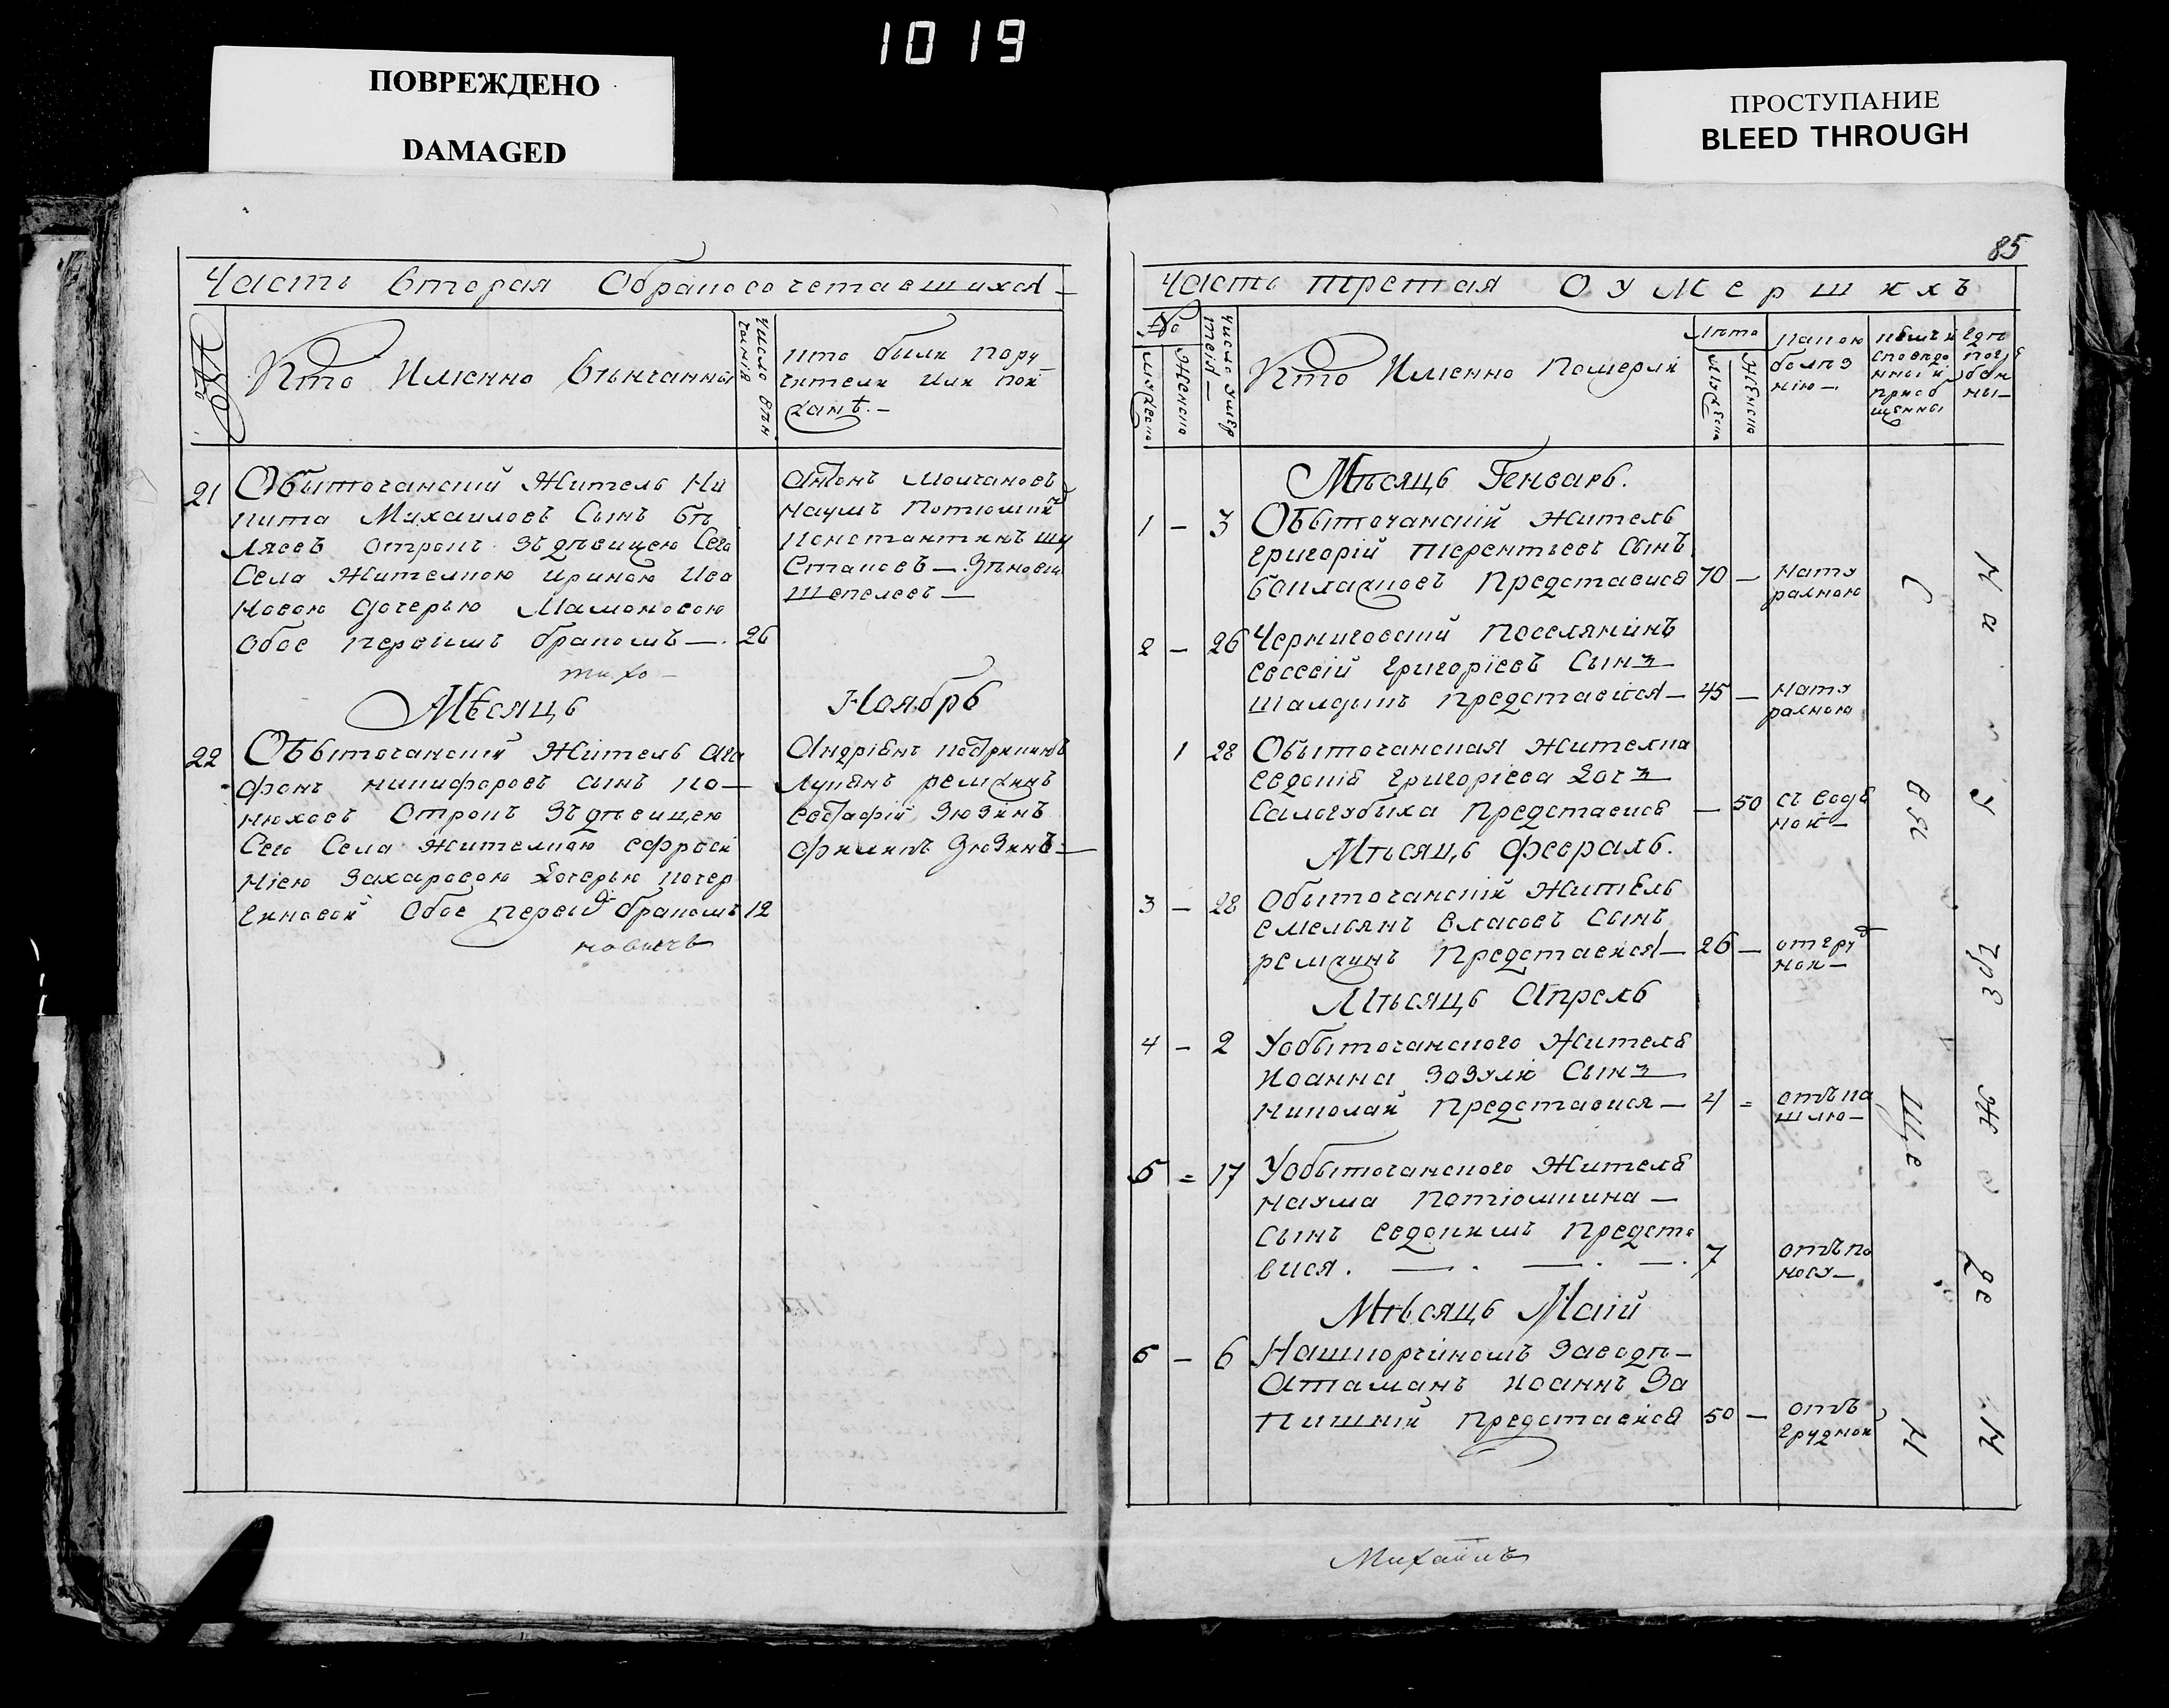 1019
ПОВРЕЖДЕНО
DAMAGED
ПРОСТУПАНИЕ
BLEED THROUGH
Часть вторая Обракосочетавшихся
№
Кто Именно Вѣнчанны
Число Вѣн
чанія
кто были пору
чители или пои
зжанѣ.—
21
Обыточанский Житель Ни
кита Михаиловъ Сынъ Бѣ
ляевъ отрокъ зъ дѣвицею Сего
Села Жителкою Ириною Ива
новою дочерью Мамоновою
Обое первимъ бракомъ — 26
Антонъ Молчановъ
Наумъ Потюмкинъ
Константинъ Шу
Стаковъ —
Шепелевъ —
тихо —
Мѣсяцъ Ноябрь
22
Обыточанский Житель Ага
фонъ Никифоровъ сынъ Ко—
нюховъ Отрокъ зъ дѣвицею
Сего Села Жителкою Ефросі
ніею Захаровою Дочерью Кочер
гиновой Обое первы бракомъ 12
Андріянъ
Лукянъ Ремзинъ
Евстафій Зюзинъ
Филипъ Зюзинъ —
новичъ
85
Часть третая О Умершихъ
№
мужеска
Женска
Число Умер
твія —
Кто Именно Померли
Лѣта
мужеска
Женска
Какою
болѣз
нію —
Кѣмъ и
споведо
нны и
приоб
щенны
Гдѣ
погре
бен
ны —
Мѣсяцъ Генварь.
1 — 3 Обыточанскій Житель
Григорій Терентьевъ Сынъ
Баклажковъ Представися 70 — Нату
ралною
2 — 26 Черниговский Поселянинъ
Евсевій Григоріевъ Сынъ
Шалдынъ Представися — 45 — Нату
ралною
1 28 Обыточанская Жителка
Евдокія Григоріева Дочъ
Самогубыха Представися — 50 съ водя
ной —
Мѣсяцъ Февраль.
3 — 28 Обыточанскій Житель
Емельянъ Власовъ Сынъ
Ремзинъ Представися — 26 — от груд
ной —
Мѣсяцъ Апрель
4 — 2 У обыточанского Жителя
Иоанна Зозули Сынъ
Николай Представися — 4 = отъ ка
шлю —
5 = 17 У обыточанского Жителя
Наума Потюмкина —
Сынъ Евдокимъ Предста
вися. — . — . — . 7 отъ по
носу —
Мѣсяцъ Маій
6 — 6 На шпорчиномъ Заводѣ —
Атаманъ Иоаннъ За
пишній Представися 50 — отъ
грудной
С вя ще н
На У
Михаилъ